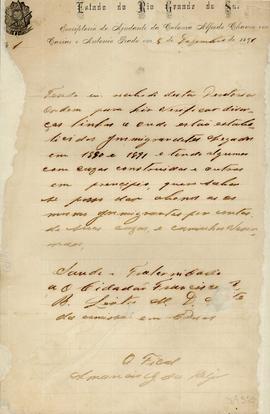 Estado do Rio Grande do Sul
Escriptorio do Ajudante da Colonia Alfredo Chaves em
Caxias e Antonio Prado em 8 de Dezembro de 1891
Tendo eu recebido desta Directoria
ordem para hir verificar diver
ças linhas a onde estão estabe
lecidos Immigrandes chegados
em 1890 e 1891 e tendo algumas
com cazas construidas e outras
em principio, quero saber
se posso dar abono as
mesmos Immigrantes por contas
de suas cazas, e caminhos
Saude e Fraternidade
Ao Cidadão Francisco
B. Leite M. D.
da comissão em
O Fiscal